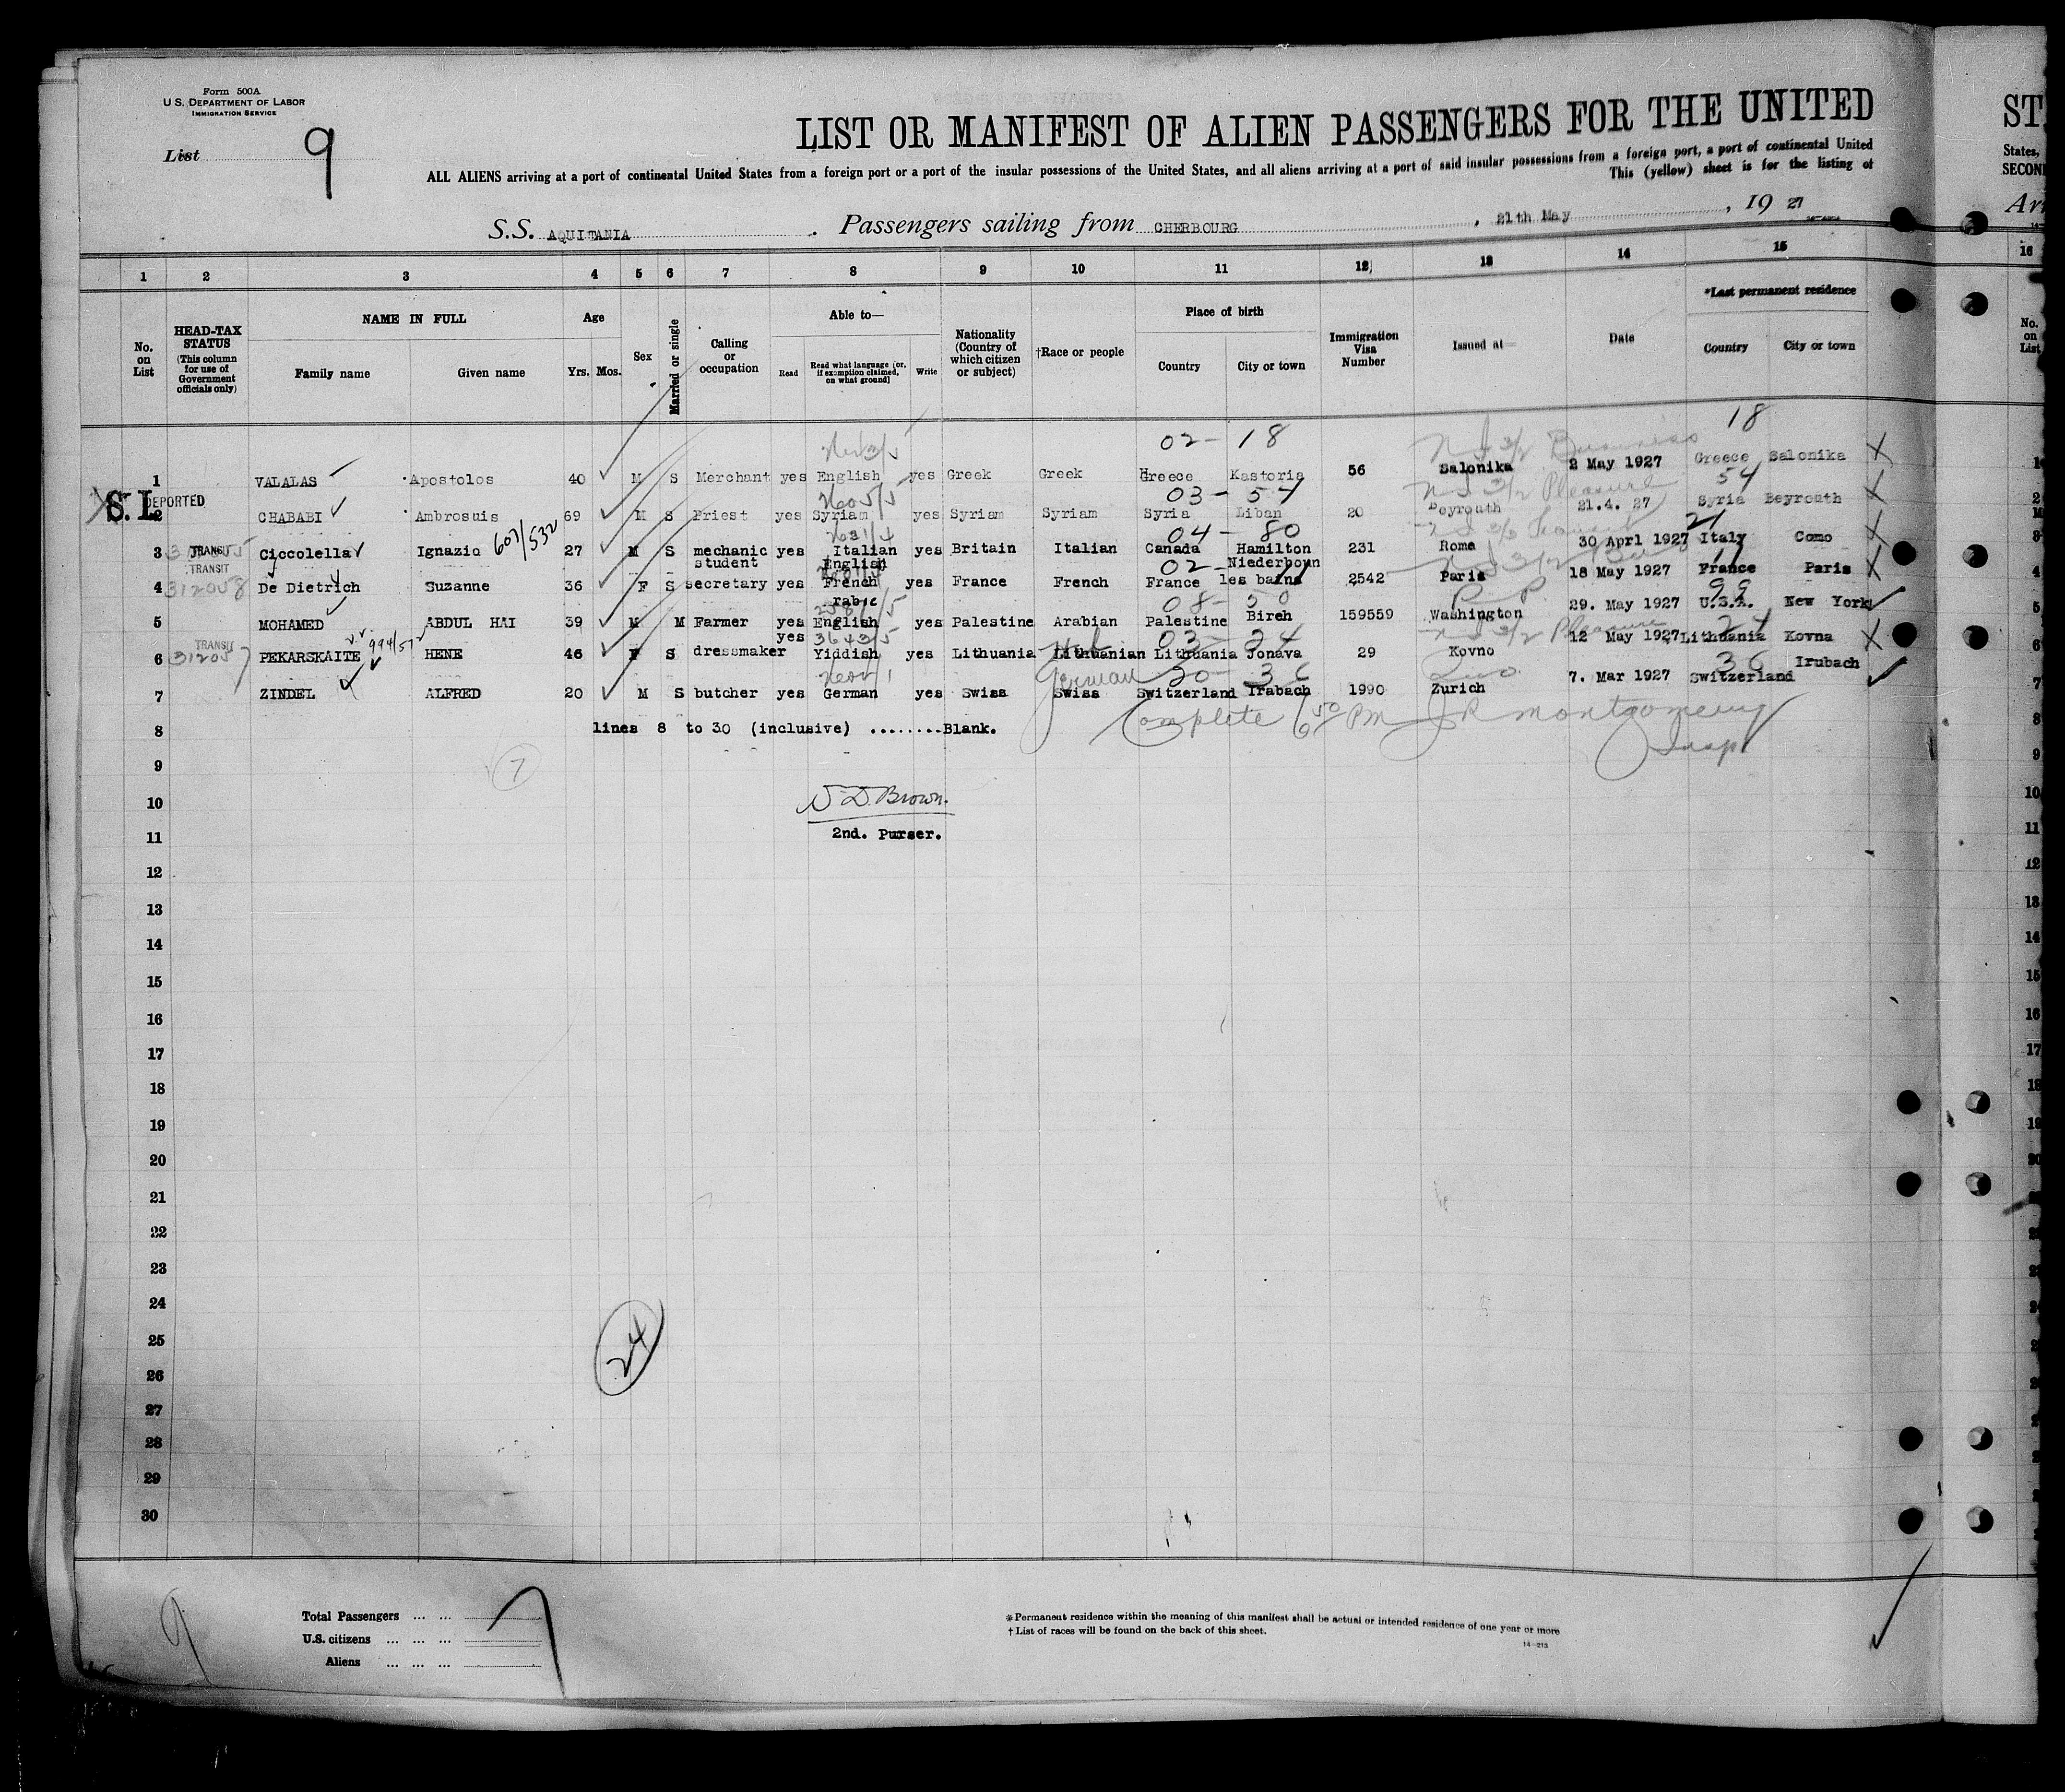 Form 500A
U.S. DEPARTMENT OF LABOR
IMMIGRATION SERVICE
List 9
LIST OR MANIFEST OF ALIEN PASSENGERS FOR THE UNITED
ALL ALIENS arriving at a port of continental United States from a foreign port or a port of the insular possessions of the United States, and all aliens arriving at a port of said insular possessions from a foreign port, a port of continental United
This (yellow) sheet is for the listing of
S.S. AQUITANIA. Passengers sailing from CHERBOURG, 21th May, 19 27
1 2 3 4 5 6 7 8 9 10 11 12 13 14 15
No. on List
HEAD-TAX STATUS
(This column for use of Government officials only)
NAME IN FULL
Family name Given name
Age
Yrs. Mos.
Sex
Married or single
Calling or occupation
Able to—
Read
Read what language (or, if exemption claimed, on what ground)
Write
Nationality (Country of which citizen or subject)
†Race or people
Place of birth
Country City or town
Immigration Visa Number
Issued at—
Date
*Last permanent residence
Country City or town
02 - 18 18
1 VALALAS Apostolos 40 M S Merchant yes English yes Greek Greek Greece Kastoria 56 Salonika 2 May 1927 Greece Salonika
03 - 54 Pleasure 54
S.I. DEPORTED
2 CHABABI Ambrosuis 69 M S Priest yes Syriam yes Syriam Syriam Syria Liban 20 Beyrouth 21.4. 27 Syria Beyrouth
04 - 80 21
3 TRANSIT Ciccolella Ignazio 607/532 27 M S mechanic student yes Italian English yes Britain Italian Canada Hamilton 231 Rome 30 Aprl 1927 Italy Como
TRANSIT
4 312058 De Dietrich Suzanne 36 F S secretary yes French yes France French France Niederboun les bains 2542 Paris 18 May 1927 France Paris
08 - 50 99
5 MOHAMED ABDUL HAI 39 M M Farmer yes rabic English yes Palestine Arabian Palestine Bireh 159559 Washington 29. May 1927 U.S.A. New York
03 - 24 Pleasure 24
6 TRANSIT 312057 PEKARSKAITE HENE 46 F S dressmaker yes Yiddish yes Lithuania Lithuanian Lithuania Jonava 29 Kovno 12 May 1927 Lithuania Kovna
German 20 - 36 36
7 ZINDEL ALFRED 20 M S butcher yes German yes Swiss Swiss Switzerland Irabach 1990 Zurich 7. Mar 1927 Switzerland Irubach
Complete 6 50 PM J R Montgomery
Insp
8 lines 8 to 30 (inclusive) ........Blank.
9
7
10
W D. Brown.
11 2nd. Purser.
12
13
14
15
16
17
18
19
20
21
22
23
24
24
25
26
27
28
29
30
9
Total Passengers ... ... 7
U.S. citizens ... ... ...
Aliens ... ... ...
* Permanent residence within the meaning of this manifest shall be actual or intended residence of one year or more
† List of races will be found on the back of this sheet.
14—213